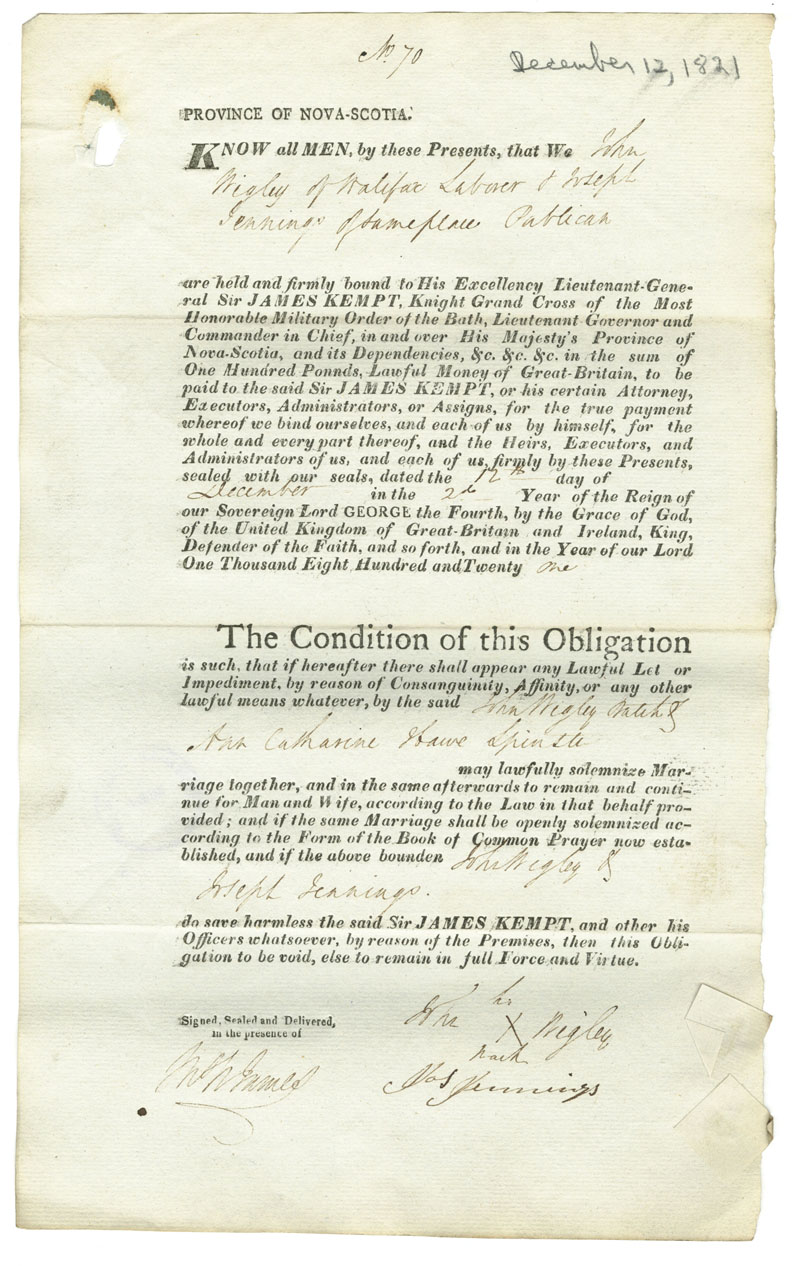 No. 70
December 12, 1821
PROVINCE OF NOVA-SCOTIA.
KNOW all MEN, by these Presents, that We John
Wigley of Halifax Laborer & Joseph
Jennings of same place Publican
are held and firmly bound to His Excellency Lieutenant-Gene-
ral Sir JAMES KEMPT, Knight Grand Cross of the Most
Honorable Military Order of the Bath, Lieutenant Governor and
Commander in Chief, in and over His Majesty's Province of
Nova-Scotia, and its Dependencies, &c. &c. &c. in the sum of
One Hundred Ponnds, Lawful Money of Great-Britain, to be
paid to the said Sir JAMES KEMPT, or his certain Attorney,
Executors, Administrators, or Assigns, for the true payment
whereof we bind ourselves, and each of us by himself, for the
whole and every part thereof, and the Heirs, Executors, and
Administrators of us, and each of us, firmly by these Presents,
sealed with our seals, dated the 12th day of
December in the 2d Year of the Reign of
our Sovereign Lord GEORGE the Fourth, by the Grace of God,
of the United Kingdom of Great-Britain and Ireland, King,
Defender of the Faith, and so forth, and in the Year of our Lord
One Thousand Eight Hundred and Twenty one
The Condition of this Obligation
is such, that if hereafter there shall appear any Lawful Let or
Impediment, by reason of Consanguinity, Affinity, or any other
lawful means whatever, by the said John Wigley Batch &
Ann Catharine Howe Spinster
may lawfully solemnize Mar-
riage together, and in the same afterwards to remain and conti-
nue for Man and Wife, according to the Law in that behalf pro-
vided; and if the same Marriage shall be openly solemnized ac-
cording to the Form of the Book of Common Prayer now esta-
blished, and if the above bounden John Wigley &
Joseph Jennings.
do save harmless the said Sir JAMES KEMPT, and other his
Officers whatsoever, by reason of the Premises, then this Obli-
gation to be void, else to remain in full Force and Virtue.
Signed, Sealed and Delivered,
in the presence of
his
John X Wigley
mark
Jos Jennings